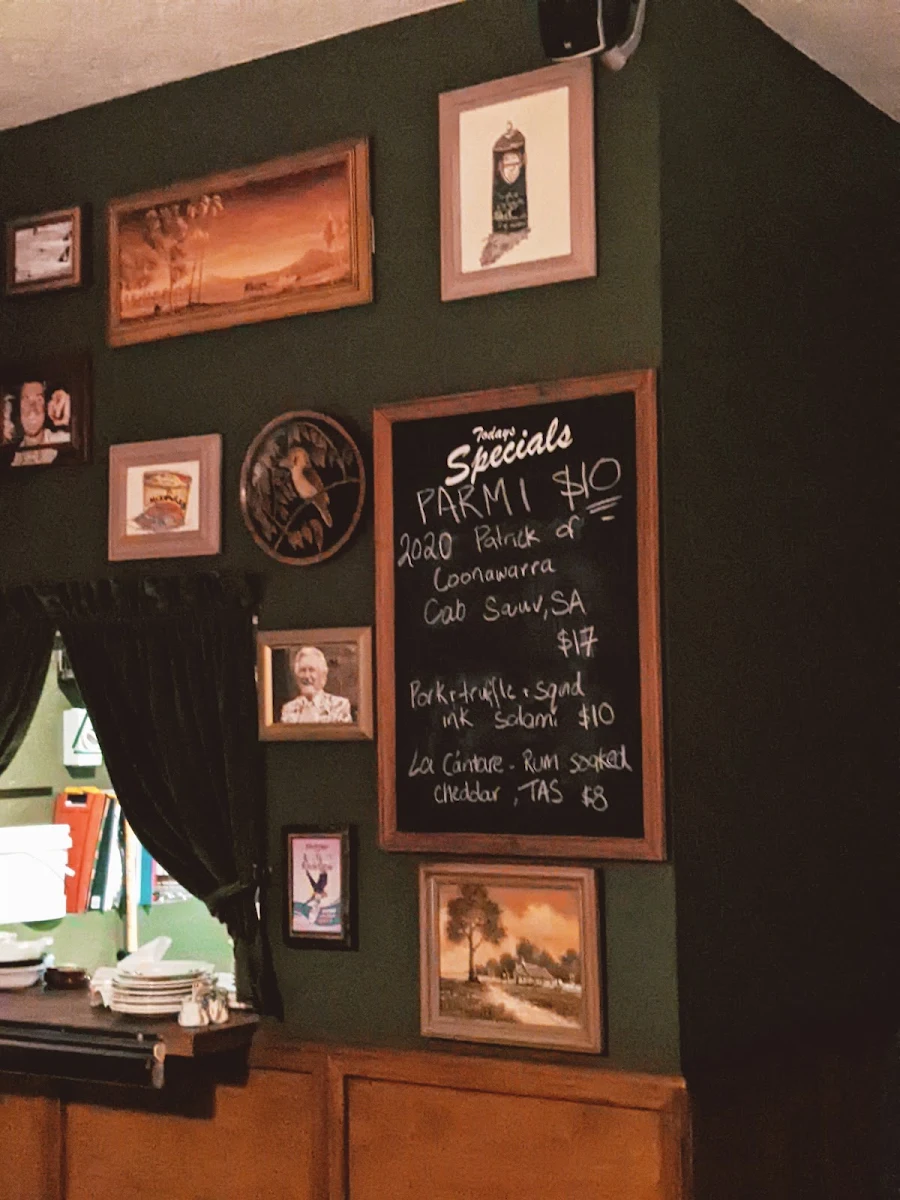 Todays
Specials
PARMI $10
2020 Patrick of
Coonawarra
Cab Sauv, SA
$17
Pork + truffle + squid
ink salami $10
La Cántare - Rum soaked
cheddar, TAS $8